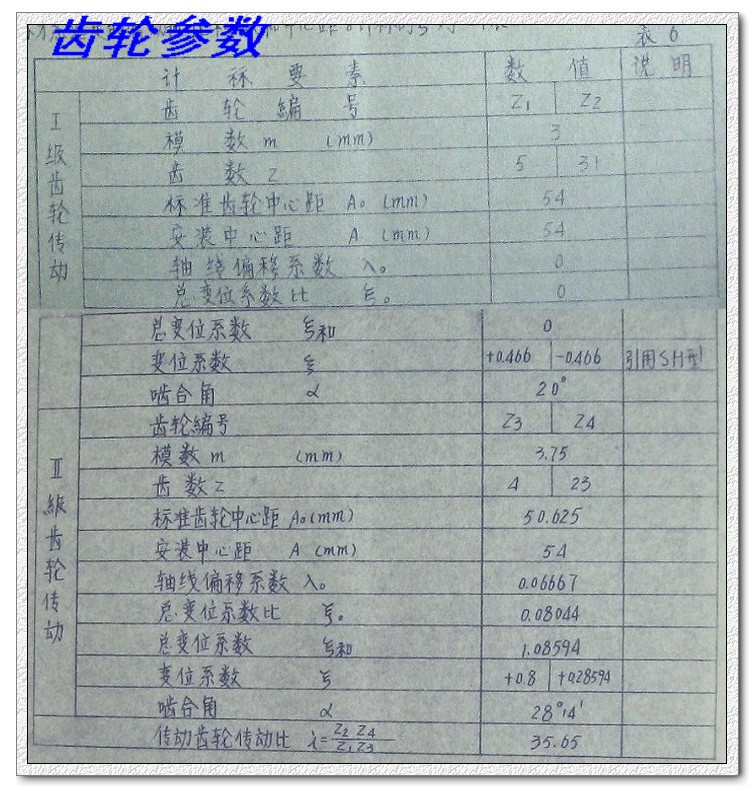 齿轮参数
表6
计 祘 要 素 数 值 说 明
I级齿轮传动
齿 轮 編 号 Z₁ Z₂
模 数 m (mm) 3
齿 数 Z 5 31
标准齿轮中心距 A₀ (mm) 54
安装中心距 A (mm) 54
轴线偏移系数 λ₀ 0
总变位系数比 ξ₀ 0
总变位系数 ξ和 0
变位系数 ξ +0.466 -0.466 引用SH型
啮合角 α 20°
II級齿轮传动
齿轮編号 Z3 Z4
模数m (mm) 3.75
齿数Z 4 23
标准齿轮中心距 A₀(mm) 50.625
安装中心距 A (mm) 54
轴线偏移系数 λ₀ 0.06667
总变位系数比 ξ₀ 0.08044
总变位系数 ξ和 1.08594
变位系数 ξ +0.8 +0.28594
啮合角 α 28°14'
传动齿轮传动比 i=Z₂Z₄/Z₁Z₃ 35.65